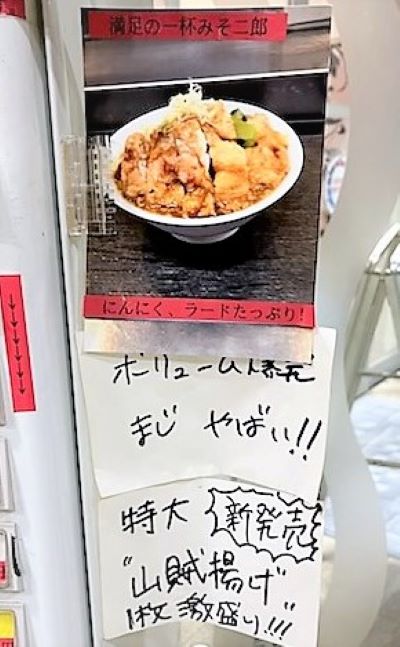 満足の一杯みそ二郎
にんにく、ラードたっぷり!
ボリューム
まじ やばい!!
特大 新発売
"山賊揚げ"
1枚激盛り!!!
↓↓↓↓↓↓